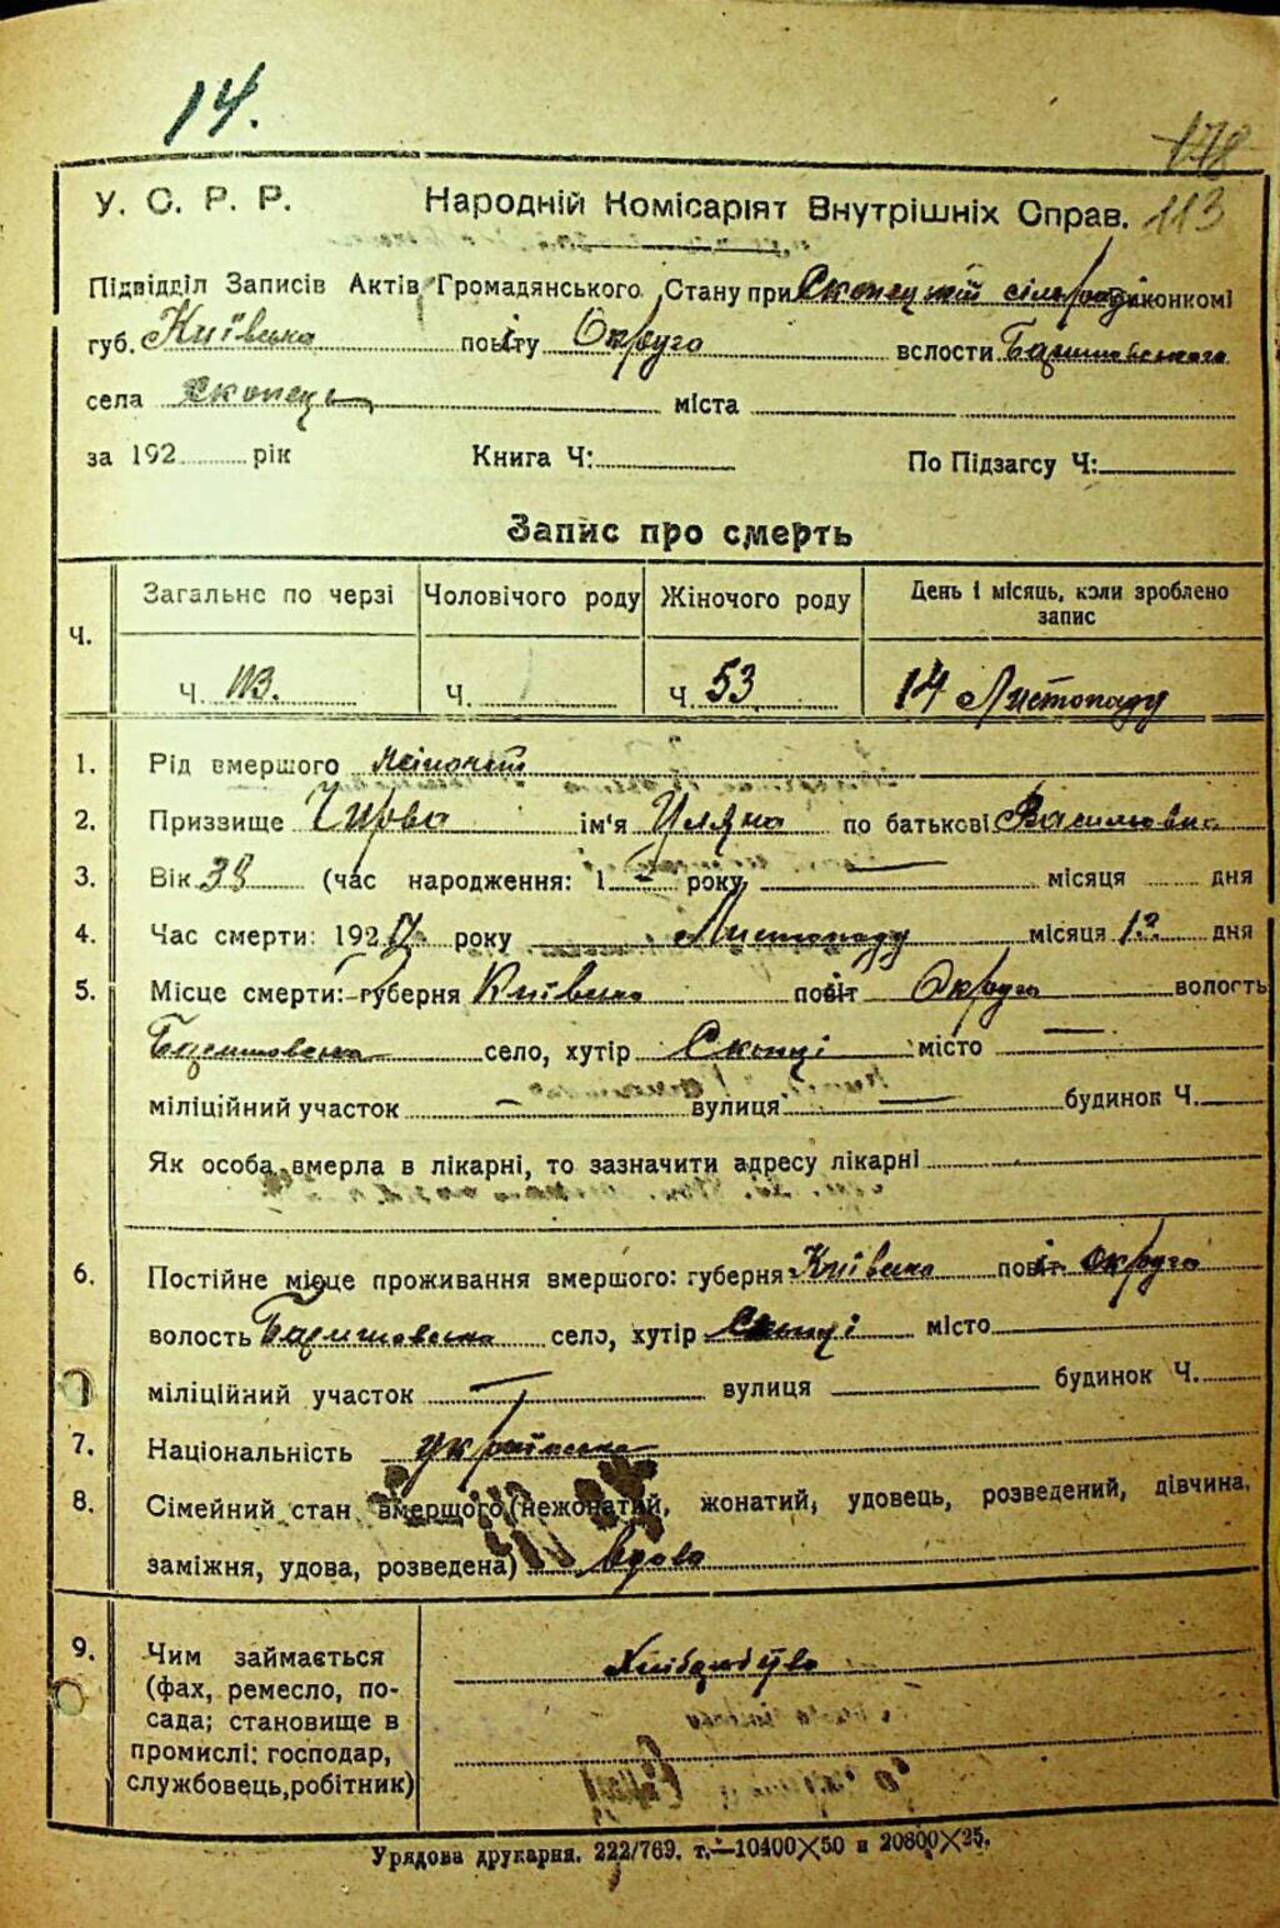 14.
178
У. С. Р. Р. Народній Комісаріят Внутрішніх Справ. 113
Підвідділ Записів Актів Громадянського Стану при сіль конкомі
губ. Київська повіту Округа вслости Баришовського
села Скопець міста
за 192 рік Книга Ч: По Підзагсу Ч:
Запис про смерть
Ч. Загальне по черзі Чоловічого роду Жіночого роду День і місяць, коли зроблено запис
Ч. 113. Ч. Ч. 53 14 Листопаду
1. Рід вмершого жіночій
2. Призвище Чирва ім'я Уляна по батькові Василівна
3. Вік 38 (час народження: 1 — року — місяця дня
4. Час смерти: 1927 року Листопаду місяця 13 дня
5. Місце смерти: губерня Київська повіт Округа волость
Баришовська село, хутір Скопці місто —
міліційний участок — вулиця — будинок Ч.
Як особа вмерла в лікарні, то зазначити адресу лікарні
6. Постійне місце проживання вмершого: губерня Київська повіт Округа
волость Баришовська село, хутір Скопці місто
міліційний участок — вулиця будинок Ч.
7. Національність українська
8. Сімейний стан вмершого (нежонатий, жонатий, удовець, розведений, дівчина,
заміжня, удова, розведена) вдова
9. Чим займається Хліборобство
(фах, ремесло, по-
сада; становище в
промислі: господар,
службовець, робітник)
Урядова друкарня. 222/769. т.—10400×50 и 20800×25.